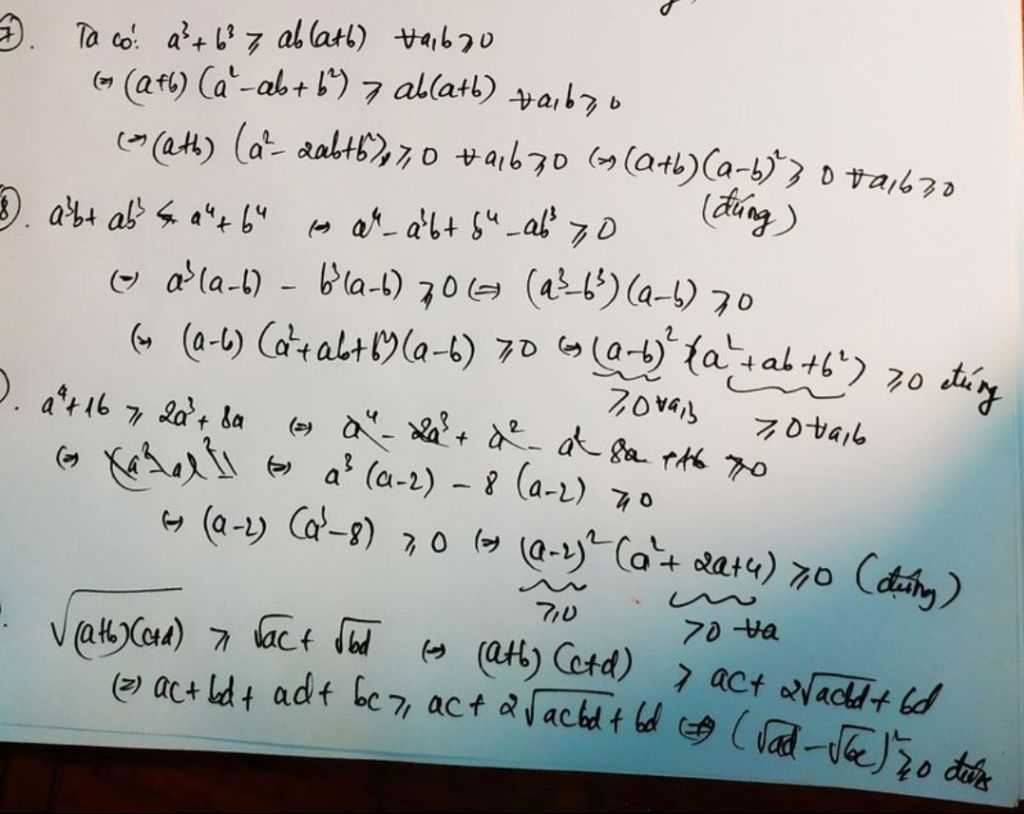 7). Ta có: a³ + b³ ≥ ab(a+b) ∀a,b ≥ 0
⇔ (a+b) (a² - ab + b²) ≥ ab(a+b) ∀a,b ≥ 0
⇔ (a+b) (a² - 2ab + b²) ≥ 0 ∀a,b ≥ 0 ⇔ (a+b)(a-b)² ≥ 0 ∀a,b ≥ 0
(đúng)
8). a³b + ab³ ≤ a⁴ + b⁴ ⇔ a⁴ - a³b + b⁴ - ab³ ≥ 0
⇔ a³(a-b) - b³(a-b) ≥ 0 ⇔ (a³-b³)(a-b) ≥ 0
⇔ (a-b) (a²+ab+b²)(a-b) ≥ 0 ⇔ (a-b)² (a²+ab+b²) ≥ 0 đúng
≥ 0 ∀a,b ≥ 0 ∀a,b
). a⁴ + 16 ≥ 2a³ + 8a ⇔ a⁴ - 2a³ + a² - a² 8a + 16 ≥ 0
⇔ ⇔ a³ (a-2) - 8 (a-2) ≥ 0
⇔ (a-2) (a³-8) ≥ 0 ⇔ (a-2)² (a² + 2a+4) ≥ 0 (đúng)
≥ 0 > 0 ∀a
. √(a+b)(c+d) ≥ √ac + √bd ⇔ (a+b) (c+d) ≥ ac + 2√acbd + bd
⇔ ac + bd + ad + bc ≥ ac + 2√acbd + bd ⇔ (√ad - √bc)² ≥ 0 đúng